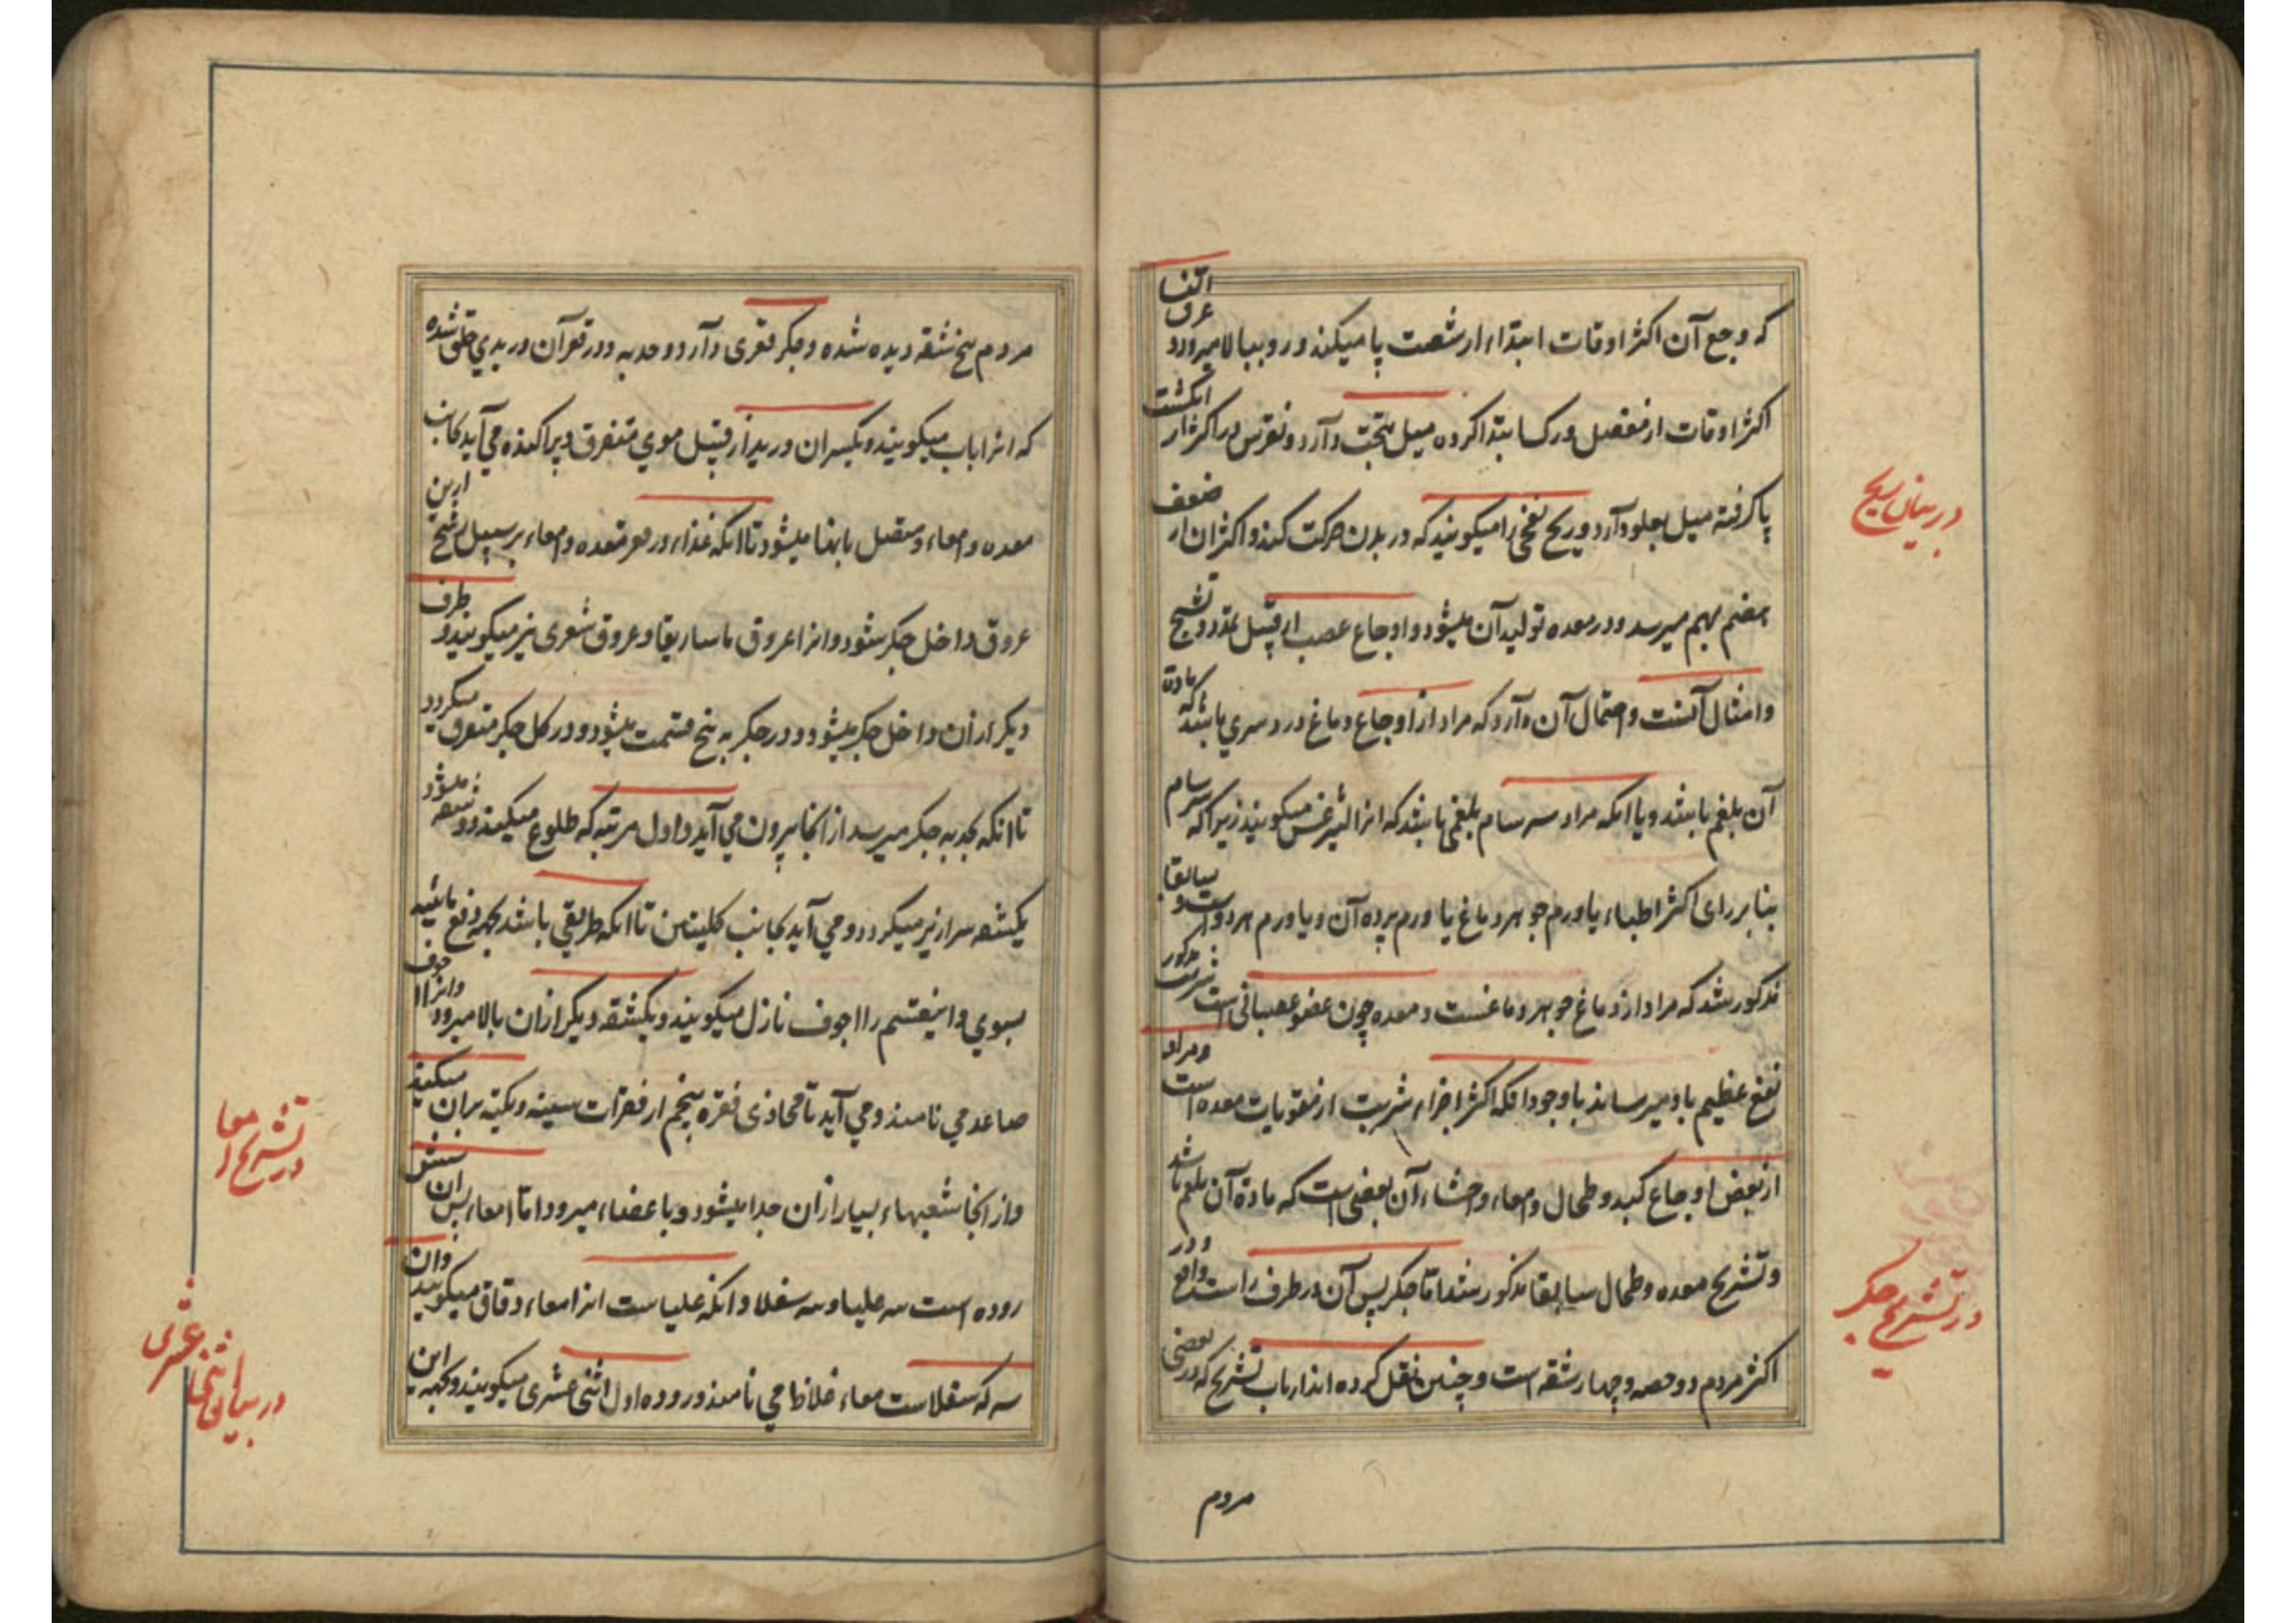 که وجع آن اکثر اوقات ابتداء از شصت پا میکند و رو ببالا میرود و عرق النسا
اکثر اوقات از مفصل ورک ابتدا کرده میل بتحت دارد و نقرس در اکثر از انگشت
پا گرفته میل بعلو دارد و ریح نفخی را میگویند که در بدن حرکت کند و اکثر ان از ضعف
هضم بهم میرسد و در معده تولید آن میشود و اوجاع عصب از قبیل تمدد و تشنج
و امثال آنست و احتمال آن دارد که مراد از اوجاع دماغ درد سری باشد که مادۀ
آن بلغم باشد و یا انکه مراد سرسام بلغمی باشد که انرا لیثرغس میگویند زیرا که سرسام
بنا بر رای اکثر اطباء یا ورم جوهر دماغ یا ورم پرده آن و یا ورم هر دو است و سابقا
مذکور شد که مراد از دماغ جوهر دماغست و معده چون عضو عصبانی است شربت مذکور
نفع عظیم باو میرساند با وجود انکه اکثر اجزاء شربت از مقویات معده است و مراد
از بعض اوجاع کبد و طحال و امعاء و احشاء آن بعضی است که مادۀ آن بلغم باشد
و تشریح معده و طحال سابقا مذکور شد اما جگر پس آن در طرف راست واقع و در
اکثر مردم دو حصه و چهار شقه است و چنین نقل کرده اند ارباب تشریح که در بعضی
مردم
در بیان ریح
در تشریح جگر
مردم پنج شقه دیده شده و جگر مقعری دارد و حدبه و در قعر آن وریدی خلق شده
که انرا باب میگویند و یکسر ان ورید از قبیل موی متفرق و پراکنده می آید بجانب
معده و امعاء و متصل بانها میشود تا انکه غذاء در قعر معده و امعاء بر سبیل ترشح ازین
عروق داخل جگر شود و انرا عروق ماساریقا و عروق شعری نیز میگویند و طرف
دیگر از ان داخل جگر میشود و در جگر به پنج قسمت میشود و در کل جگر متفرق میگردد
تا انکه بحدبه جگر میرسد از انجا بیرون می آید و اول مرتبه که طلوع میکند دو شعبه میشود
یکشعبه سرازیر میگردد و می آید بجانب کلیتین تا انکه طریقی باشد بجهه دفع مائیه
بسوی و اینقسم را اجوف نازل میگویند و یکشقه دیگر از ان بالا میرود و انرا اجوف
صاعد می نامند و می آید تا محاذی فقره پنجم از فقرات سینه و تکیه بران میکند
و از انجا شعبهاء بسیار از ان جدا میشود و باعضاء میرود اما امعاء پس ان شش
روده است سه علیا و سه سفلا و انکه علیاست انرا امعاء دقاق میگویند و ان
سه که سفلاست معاء غلاظ می نامند و روده اول اثنی عشری میگویند و بجهه این
در تشریح امعا
در بیان اثنی عشری